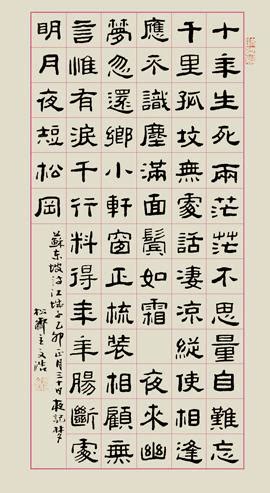 十年生死兩茫茫不思量自難忘
千里孤墳無處話淒涼縱使相逢
應不識塵滿面鬢如霜 夜來幽
夢忽還鄉小軒窗正梳裝相顧無
言惟有淚千行料得年年腸斷處
明月夜短松岡
蘇東坡 江城子乙卯正月 十日夜記夢
松齋主文浩